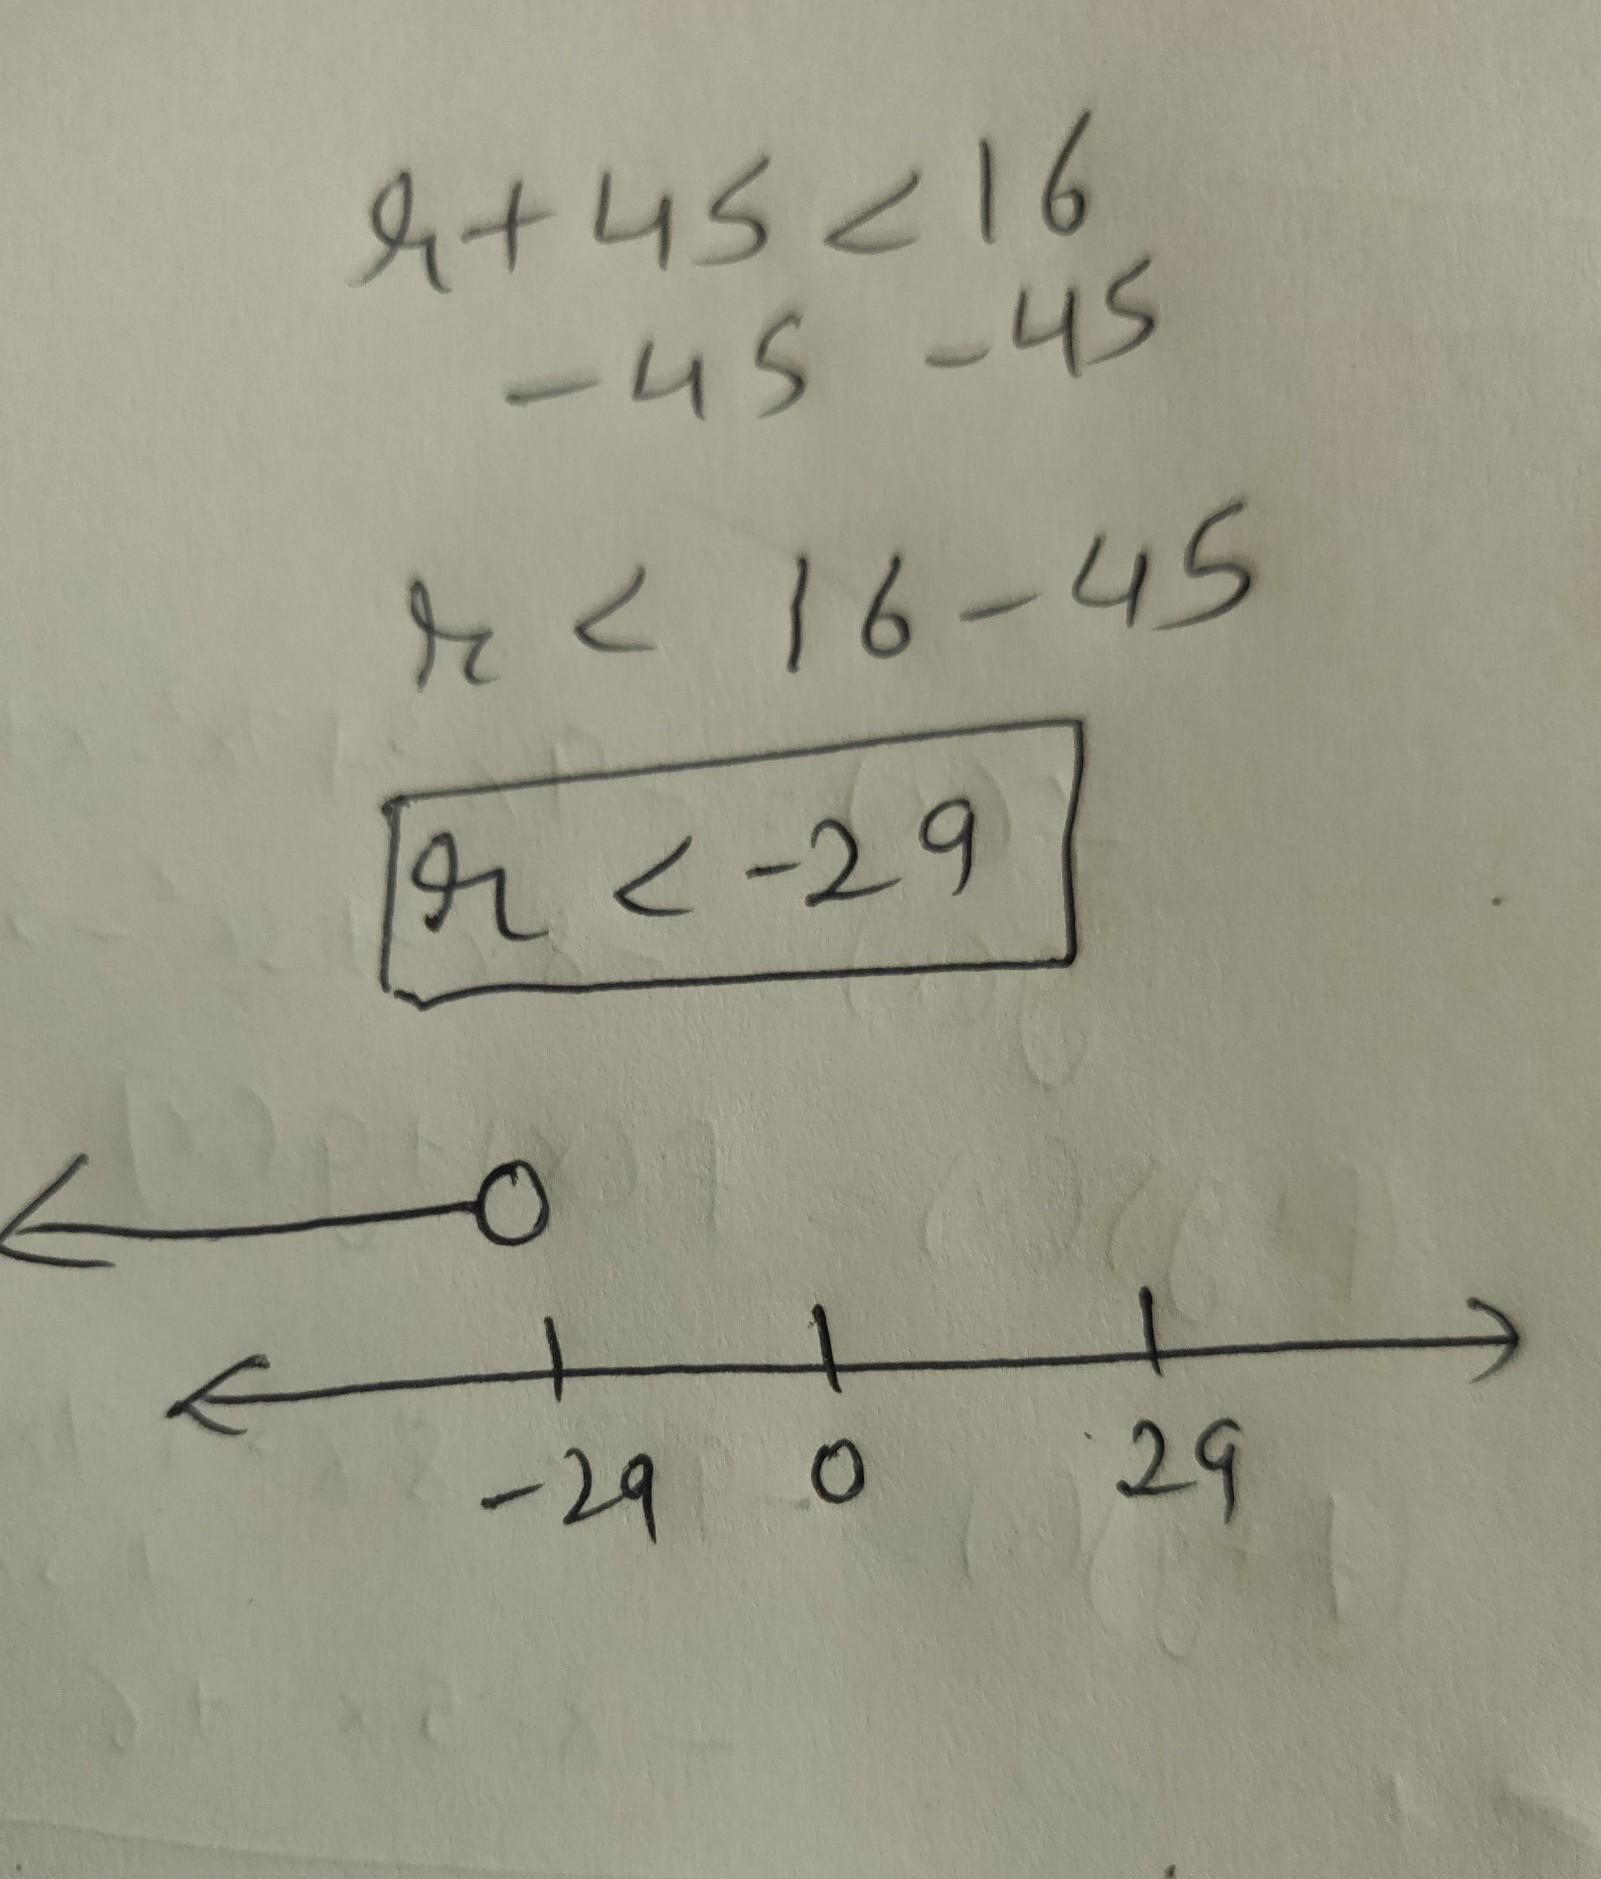 r + 45 < 16
- 45 - 45
r < 16 - 45
r < -29
-29 0 29